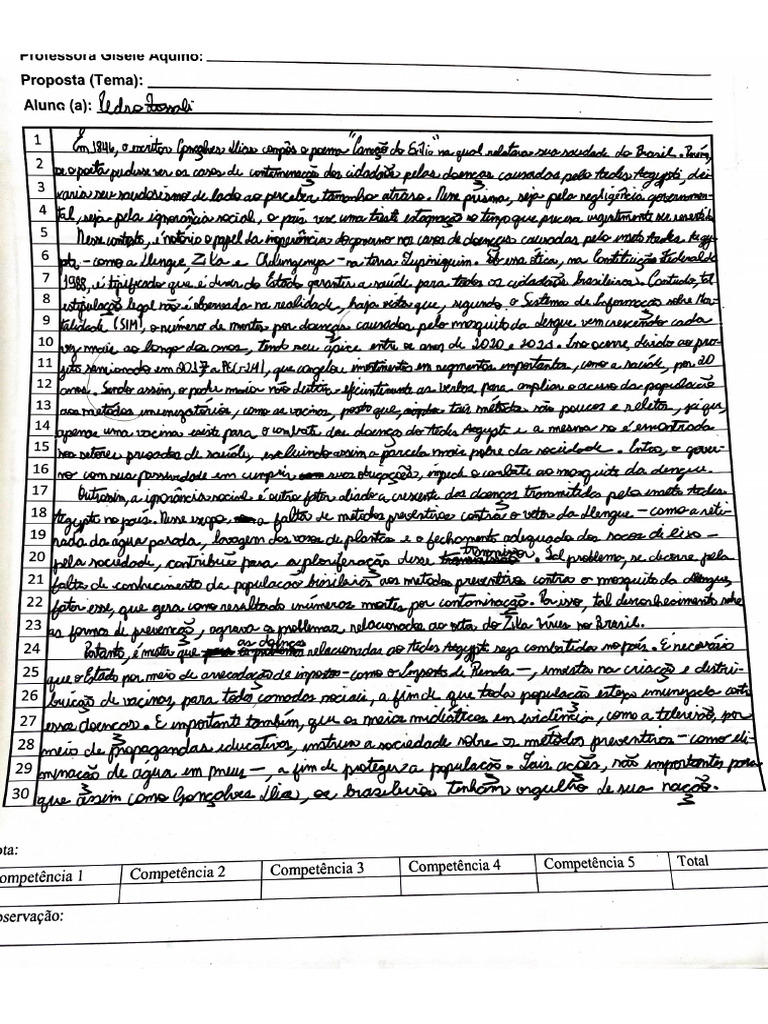 Professora Gisele Aquino:
Proposta (Tema):
Aluno (a): Pedro
1 Em 1846, o escritor Gonçalves Dias compôs o poema "Canção do Exílio" na qual relatara sua saudade do Brasil. Porém,
2 se o poeta pudesse ver os casos de contaminação dos cidadãos pelas doenças causadas pelo Aedes Aegypti, dei-
3 xaria seu saudosismo de lado ao perceber tamanho atraso. Nesse prisma, seja pela negligência governamen-
4 tal, seja pela ignorância social, o país vive uma triste estagnação ao tempo que precisa urgentemente ser
5 Nesse contexto, é notório o papel da inoperância do governo nos casos de doenças causadas pelo inseto Aedes Aegy-
6 pti - como a Dengue, Zika e Chikungunya - na terra Tupiniquim. Sob essa ótica, na Constituição Federal de
7 1988, é tipificado que é dever do Estado garantir a saúde para todos os cidadãos brasileiros. Contudo, tal
8 estipulação legal não é observada na realidade, haja vista que, segundo o Sistema de Informação sobre Mor-
9 talidade (SIM), o número de mortes por doenças causadas pelo mosquito da dengue vem crescendo cada
10 vez mais ao longo dos anos, tendo seu ápice entre os anos de 2020 e 2023. Isso ocorre, devido ao pro-
11 jeto sancionado em 2017 a PEC-241, que congelou investimentos em segmentos importantes, como a saúde, por 20
12 anos. Sendo assim, o poder maior não destina eficientemente as verbas para ampliar o acesso da população
13 aos métodos imunizatórios, como as vacinas, posto que, tais métodos são poucos e seletos, já que,
14 apenas uma vacina existe para o combate das doenças do Aedes Aegypti e a mesma só é encontrada
15 nos setores privados de saúde, excluindo assim a parcela mais pobre da sociedade. Entao, o gover-
16 no com sua passividade em cumprir suas obrigações, impede o combate ao mosquito da dengue.
17 Outrossim, a ignorância social é outro fator aliado a crescente das doenças transmitidas pelo inseto Aedes
18 Aegypti no país. Nesse escopo a falta de métodos preventivos contra o vetor da Dengue - como a reti-
19 rada da água parada, lavagem dos vasos de plantas e o fechamento adequado dos sacos de lixo -
20 pela sociedade, contribui para a ploriferação desse transmissor. Tal problema, se decorre pela
21 falta de conhecimento da população brasileira aos métodos preventivos contra o mosquito da dengue,
22 fator esse, que gera como resultado inúmeras mortes por contaminação. Por isso, tal desconhecimento sobre
23 as formas de prevenção, agrava os problemas relacionados ao vetor do Zika Vírus no Brasil.
24 Portanto, é mister que as doenças relacionadas ao Aedes Aegypti seja combatida no país. É necessário
25 que o Estado por meio de arrecadação de impostos - como o Imposto de Renda -, invista na criação e distri-
26 buição de vacinas, para todas camadas sociais, a fim de que toda população esteja imunizada contra
27 essas doenças. É importante também, que os meios midiáticos em evidência, como a televisão, por
28 meio de propagandas educativas, instrua a sociedade sobre os métodos preventivos - como eli-
29 minação de água em pneus -, a fim de proteger a população. Tais ações, são importantes para
30 que assim como Gonçalves Dias, os brasileiros tenham orgulho de sua nação.
ota:
ompetência 1 Competência 2 Competência 3 Competência 4 Competência 5 Total
bservação: